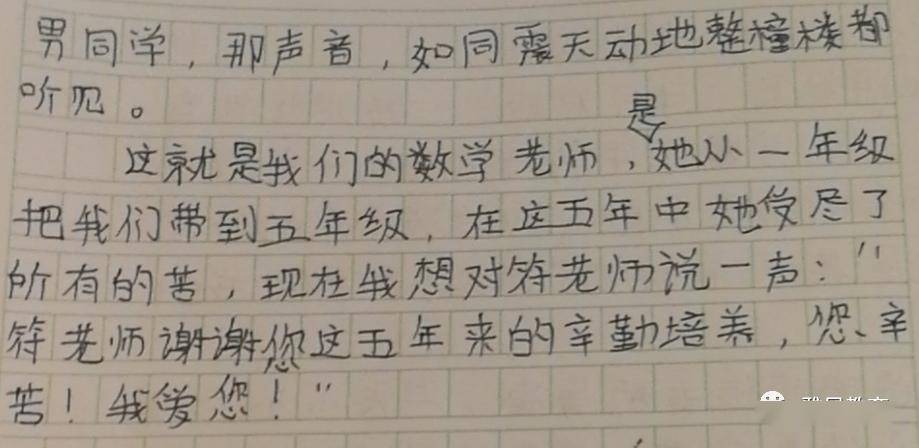 男同学，那声音，如同震天动地整橦楼都
听见。
这就是我们的数学老师，是她从一年级
把我们带到五年级，在这五年中她受尽了
所有的苦，现在我想对符老师说一声：“
符老师谢谢您这五年来的辛勤培养，您辛
苦！我爱您！”